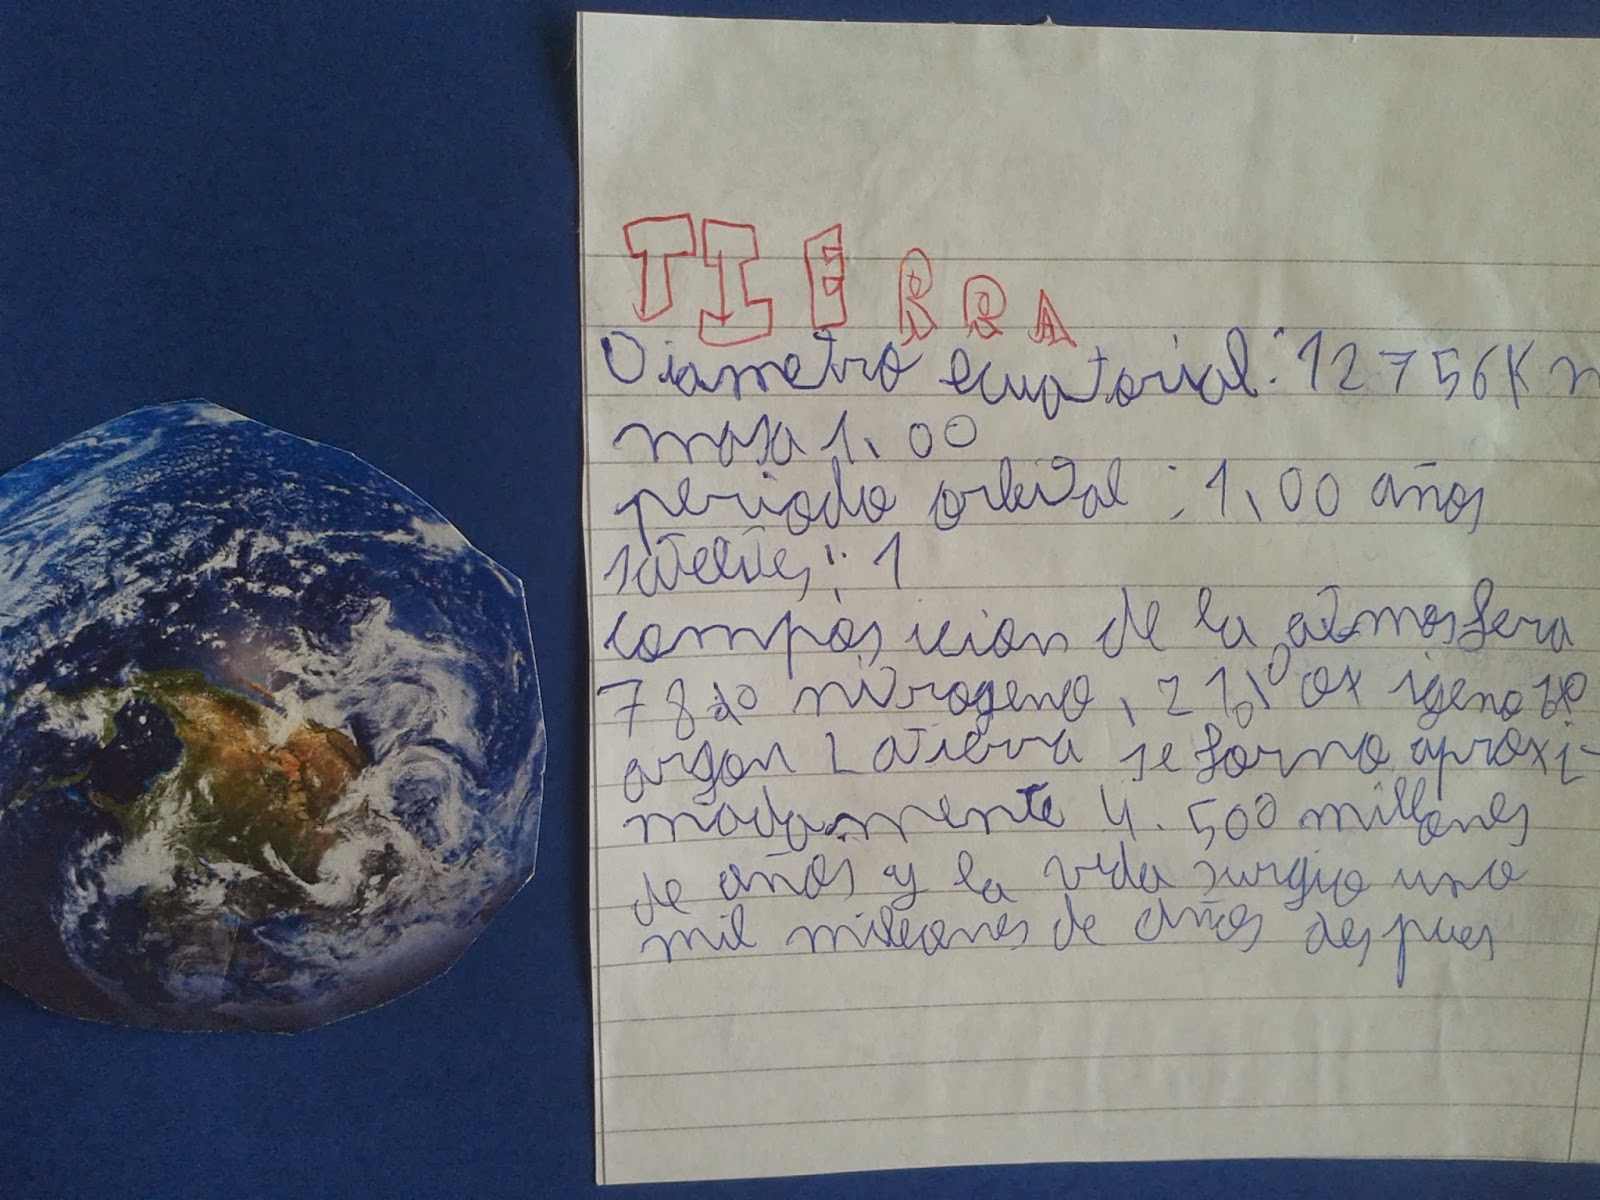 TIERRA
Diametro ecuatorial: 12756Km
masa 1,00
periodo orbital: 1,00 años
satelites: 1
composicion de la atmosfera
78% nitrogeno, 21% oxigeno 1%
argon La tierra se formo aproxi-
madamente 4.500 millones
de años y la vida surgio uno
mil millones de años despues